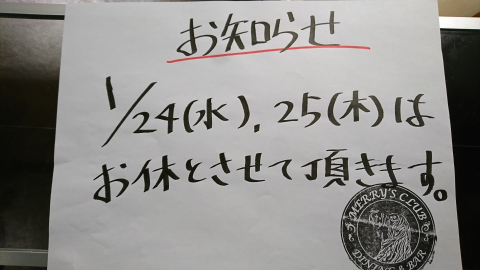 お知らせ
1/24(水),25(木)は
お休とさせて頂きます。
MERRY'S CLUB
DINING & BAR